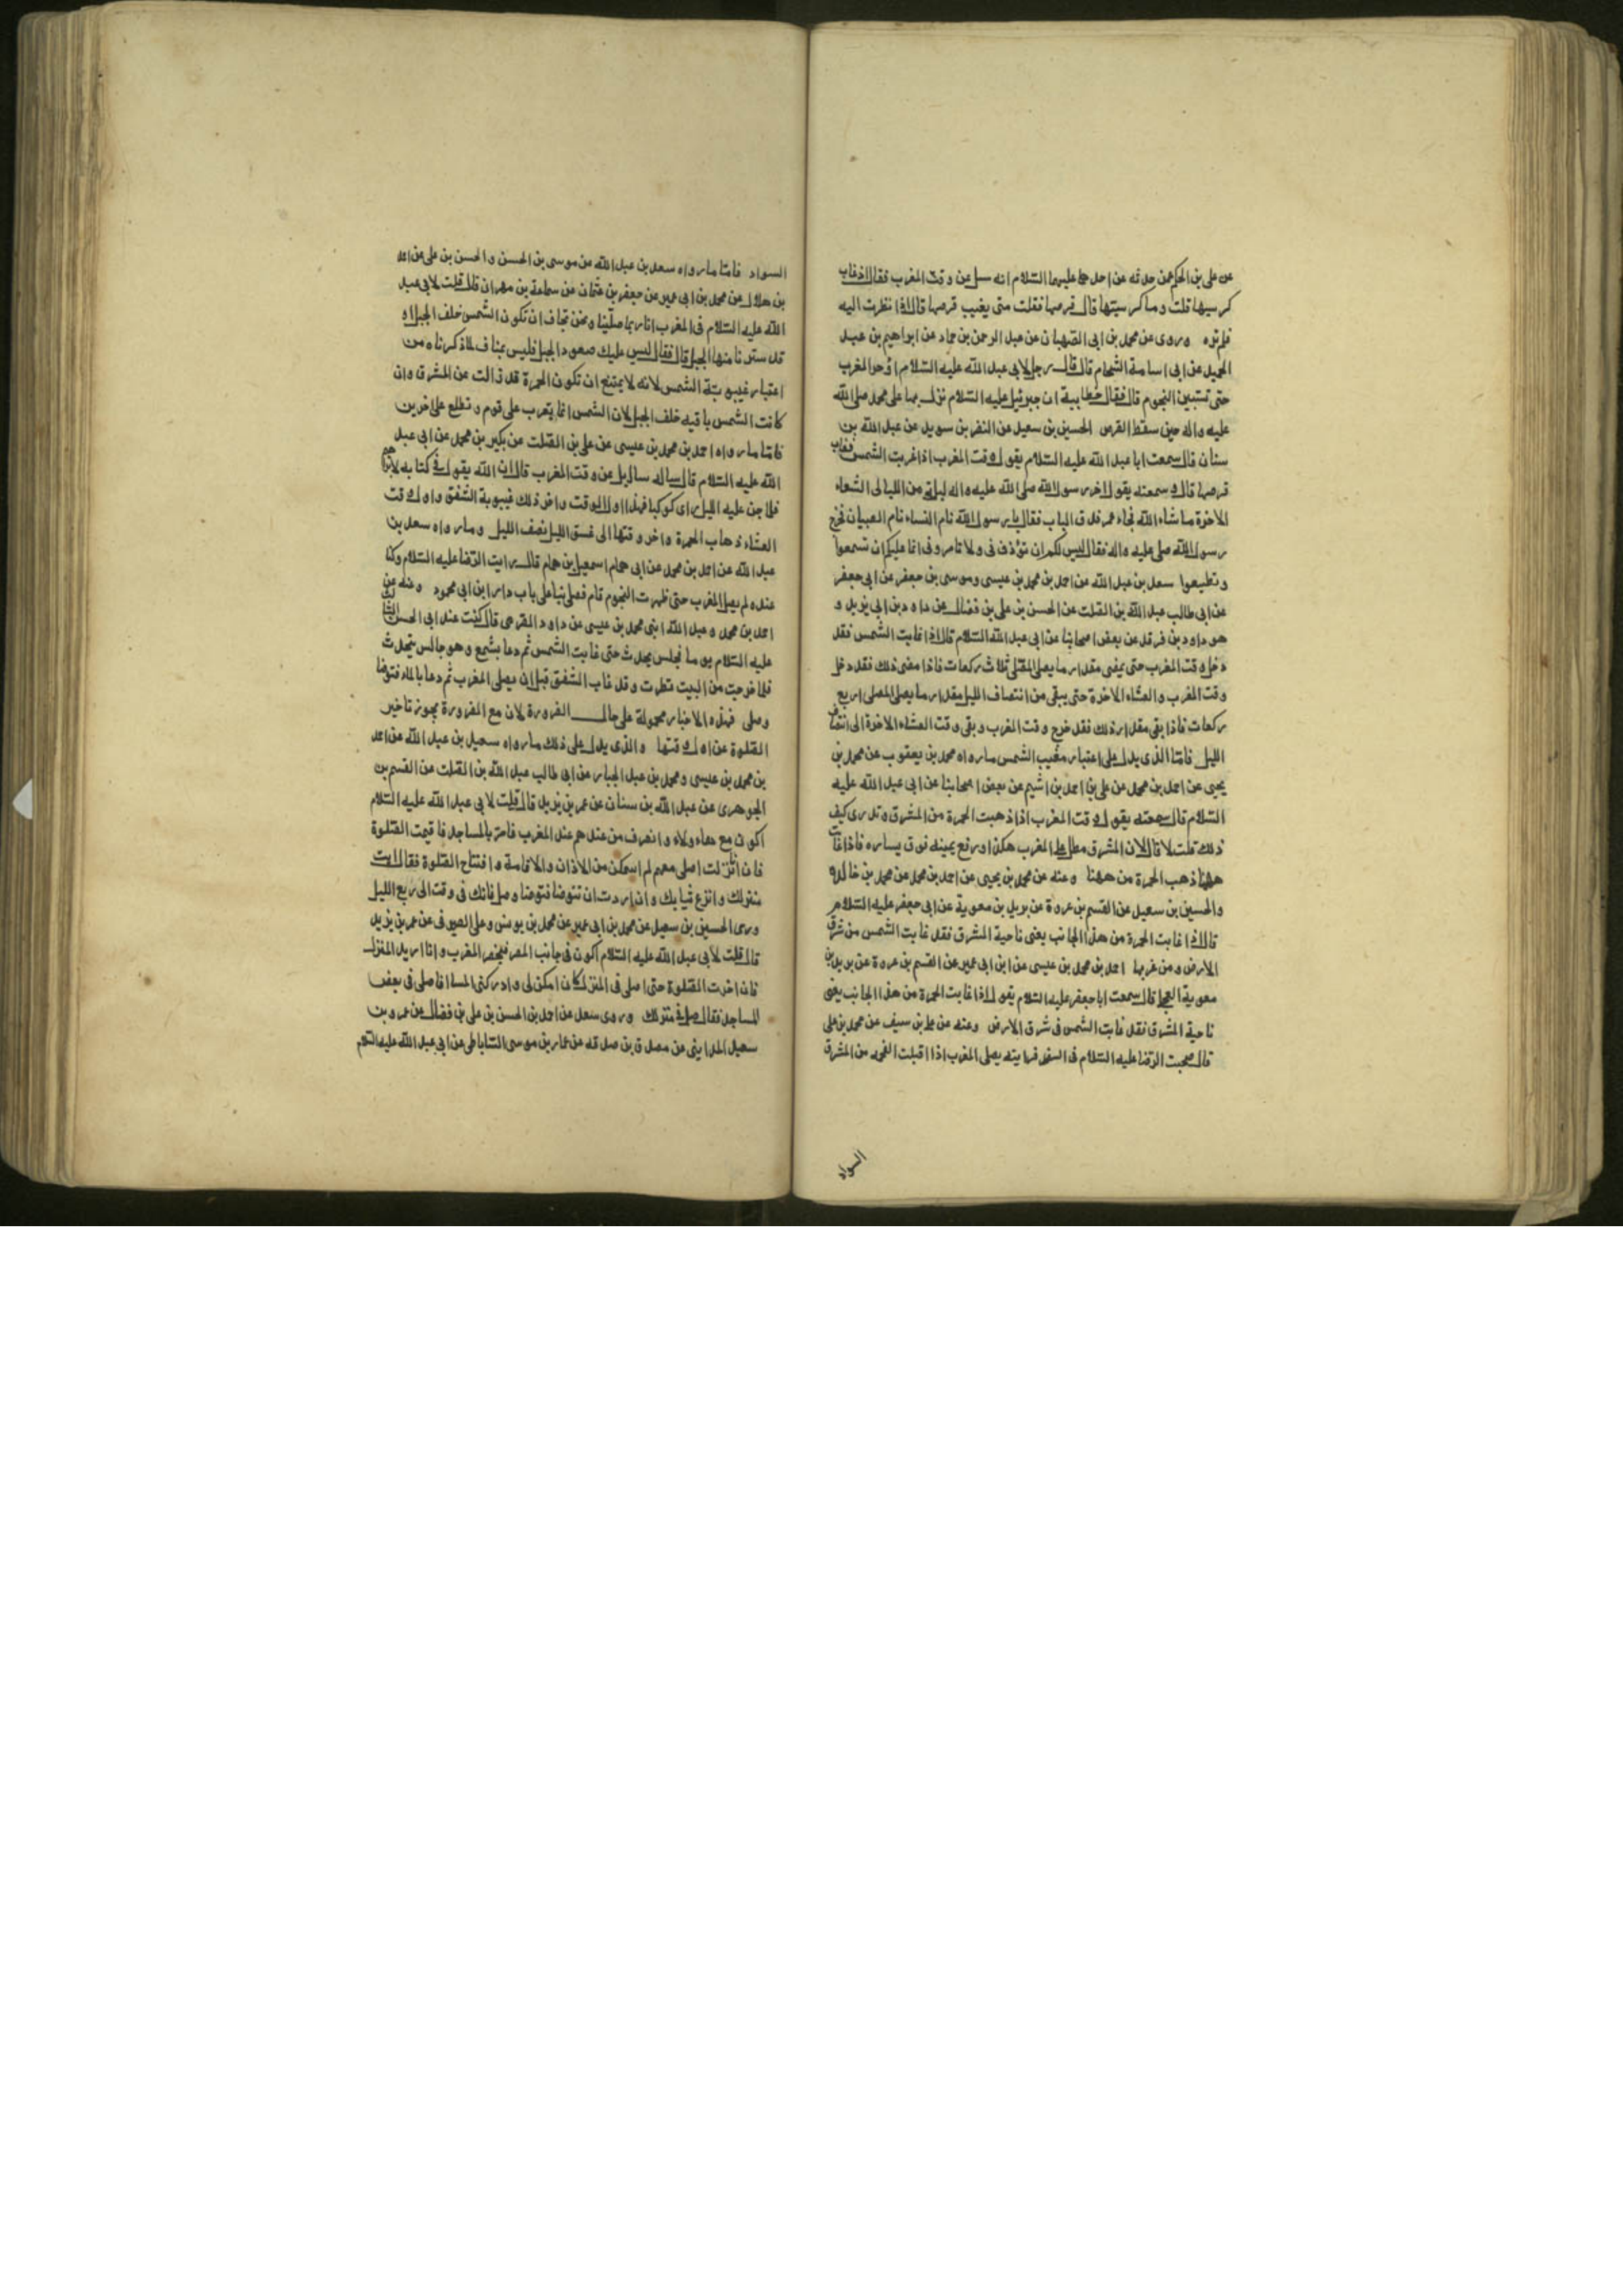 عن علي بن الحكم عمن حدثه عن احدهما عليهما السلام انه سئل عن وقت المغرب فقال اذا غاب
كرسيها قلت وما كرسيتها قال قرصها فقلت متى يغيب قرصها قال اذا نظرت اليه
فلم تره وروى عن محمد بن ابي الصهبان عن عبد الرحمن بن حماد عن ابراهيم بن عبد
الحميد عن ابي اسامة الشحام قال قال رجل لابي عبد الله عليه السلام اؤخر المغرب
حتى تستبين النجوم قال فقال خطابية ان جبرئيل عليه السلام نزل بها على محمد صلى الله
عليه واله حين سقط القرص الحسين بن سعيد عن النضر بن سويد عن عبد الله بن
سنان قال سمعت ابا عبد الله عليه السلام يقول وقت المغرب اذا غربت الشمس فغاب
قرصها قال و سمعته يقول اخر رسول الله صلى الله عليه واله ليلة من الليالي العشاء
الاخرة ما شاء الله فجاء عمر فدق الباب فقال يا رسول الله نام النساء نام الصبيان فخرج
رسول الله صلى عليه واله فقال ليس لكم ان تؤذوني ولا تامروني انما عليكم ان تسمعوا
وتطيعوا سعد بن عبد الله عن احمد بن محمد بن عيسى وموسى بن جعفر عن ابي جعفر
عن ابي طالب عبد الله بن الصلت عن الحسن بن علي بن فضال عن داود بن ابي يزيد و
هو داود بن فرقد عن بعض اصحابنا عن ابي عبد الله السلام قال اذا غابت الشمس فقد
دخل وقت المغرب حتى يمضي مقدار ما يصلي المصلي ثلاث ركعات فاذا مضى ذلك فقد دخل
وقت المغرب والعشاء الاخرة حتى يبقى من انتصاف الليل مقدار ما يصلي المصلي اربع
ركعات فاذا بقي مقدار ذلك فقد خرج وقت المغرب وبقي وقت العشاء الاخرة الى انتصاف
الليل فامّا الذي يدل على اعتبار مغيب الشمس ما رواه محمد بن يعقوب عن محمد بن
يحيى عن احمد بن محمد عن علي بن احمد بن اشيم عن بعض اصحابنا عن ابي عبد الله عليه
السلام قال سمعته يقول وقت المغرب اذا ذهبت الحمرة من المشرق وتدري كيف
ذلك قلت لا قال لان المشرق مطل على المغرب هكذا ورفع يمينه فوق يساره فاذا غابت
ههنا ذهب الحمرة من ههنا وعنه عن محمد بن يحيى عن احمد بن محمد عن محمد بن خالد
والحسين بن سعيد عن القسم بن عروة عن بريد بن معوية عن ابي جعفر عليه السلام
قال اذا غابت الحمرة من هذا الجانب يعني ناحية المشرق فقد غابت الشمس من شرق
الارض ومن غربها احمد بن محمد بن عيسى عن ابن ابي عمير عن القسم بن عروة عن بريد بن
معوية العجلي قال سمعت ابا جعفر عليه السلام يقول اذا غابت الحمرة من هذا الجانب يعني
ناحية المشرق فقد غابت الشمس في شرق الارض وعنه عن علي بن سيف عن محمد بن علي
قال صحبت الرضا عليه السلام في السفر فرايته يصلي المغرب اذا اقبلت الفحمه من المشرق
السواد
السواد فامّا ما رواه سعد بن عبد الله عن موسى بن الحسن والحسن بن علي عن احمد
بن هلال عن محمد بن ابي عمير عن جعفر بن عثمان عن سماعة بن مهران قال قلت لابي عبد
الله عليه السلام في المغرب انا ربما صلينا ونحن نخاف ان تكون الشمس خلف الجبل او
قد سترنا منها الجبل قال فقال ليس عليك صعود الجبل فليس بمناف لما ذكرناه من
اعتبار غيبوبة الشمس لانه لا يمتنع ان تكون الحمرة قد زالت عن المشرق وان
كانت الشمس باقيه خلف الجبل لان الشمس انما يتغرب على قوم و تطلع على اخرين
فامّا ما رواه احمد بن محمد بن عيسى عن علي بن الصلت عن بكير بن محمد عن ابي عبد
الله عليه السلام قال ساله سائل عن وقت المغرب قال ان الله يقول في كتابه لابراهيم
فلما جن عليه الليل راى كوكبا فهذا اول الوقت واخر ذلك غيبوبة الشفق واول وقت
العشاء ذهاب الحمرة واخر وقتها الى غسق الليل نصف الليل وما رواه سعد بن
عبد الله عن احمد بن محمد عن ابي همام اسمعيل بن همام قال رايت الرضا عليه السلام وكنا
عنده لم يصل المغرب حتى ظهرت النجوم قام فصلى بنا على باب دار ابن ابي محمود وعنه عن
احمد بن محمد وعبد الله ابني محمد بن عيسى عن داود الصرمى قال كنت عند ابي الحسن الثالث
عليه السلام يوما فجلس يحدث حتى غابت الشمس ثم دعا بشمع وهو جالس يتحدث
فلما خرجت من البيت نظرت وقد غاب الشفق قبل ان يصلي المغرب ثم دعا بالماء فتوضا
وصلى فهذه الاخبار محمولة على حال الضرورة لان مع الضرورة يجوز تاخير
الصلوة عن اول وقتها والذي يدل على ذلك ما رواه سعيد بن عبد الله عن احمد
بن محمد بن عيسى ومحمد بن عبد الجبار عن ابي طالب عبد الله بن الصلت عن القسم بن
الجوهرى عن عبد الله بن سنان عن عمر بن يزيد قال قلت لابي عبد الله عليه السلام
اكون مع هاولاء وانصرف من عندهم عند المغرب فامر بالمساجد فاقيمت الصلوة
فان انزلت اصلي معهم لم استمكن من الاذان والاقامة وافتتاح الصلوة فقال ايت
منزلك وانزع ثيابك وان اردت ان تتوضا فتوضا وصل فانك في وقت الى ربع الليل
وروى الحسين بن سعيد عن محمد بن ابي عمير عن محمد بن يونس وعلي الصيرفي عن عمر بن يزيد
قال قلت لابي عبد الله عليه السلام اكون في جانب المصر فيحضر المغرب وانا اريد المنزل
فان اخرت الصلوة حتى اصلي في المنزل كان امكن لي وادركني المسا افاصلي في بعض
المساجد فقال صل في منزلك وروى سعد عن احمد بن الحسن بن علي بن فضال عن عمرو بن
سعيد المدايني عن مصدق بن صدقه عن عمار بن موسى الساباطي عن ابي عبد الله عليه السلام